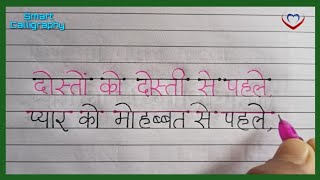 Smart
Calligraphy
दोस्तों को दोस्ती से पहले,
प्यार को मोहब्बत से पहले,